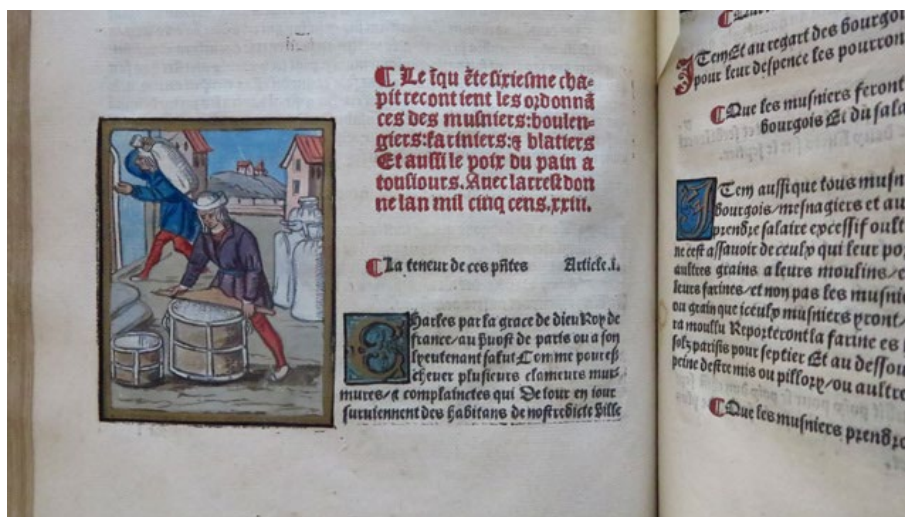 ¶ Le īqu ēte sixiesme cha-
pit recont ient les ordonnā
ces des musniers: boulen-
giers: fariniers: & blatiers
Et aussi le poix du pain a
tousiours. Avec larrest don
ne lan mil cinq cens. xxiii.
¶ La teneur de ces pñtes Article. i.
Charles par la grace de dieu Roy de
france/au p̄uost de paris ou a son
lyeutenant salut Comme pour es
cheuer plusieurs clameurs mur-
mures/& complainctes qui De iour en iour
suruiennent des habitans de nostredicte Ville
ITem Et au regart des bourgoi
pour leur despence les pourron
¶ Que les musniers feront
bourgois Et du sala
ITem aussi que tous musn
bourgois/mesnagiers et au
prendre salaire excessif oult
ne cest assauoir de ceulx qui leur po
aultres grains a leurs moulins/e
leurs farines/et non pas les musni
ou grain que iceulx musniers yront/
ra moullu Reporteront la farine es
solz parisis pour septier Et au dessou
peine destre mis ou pillory/ou aultre
¶ Que les musniers prendro